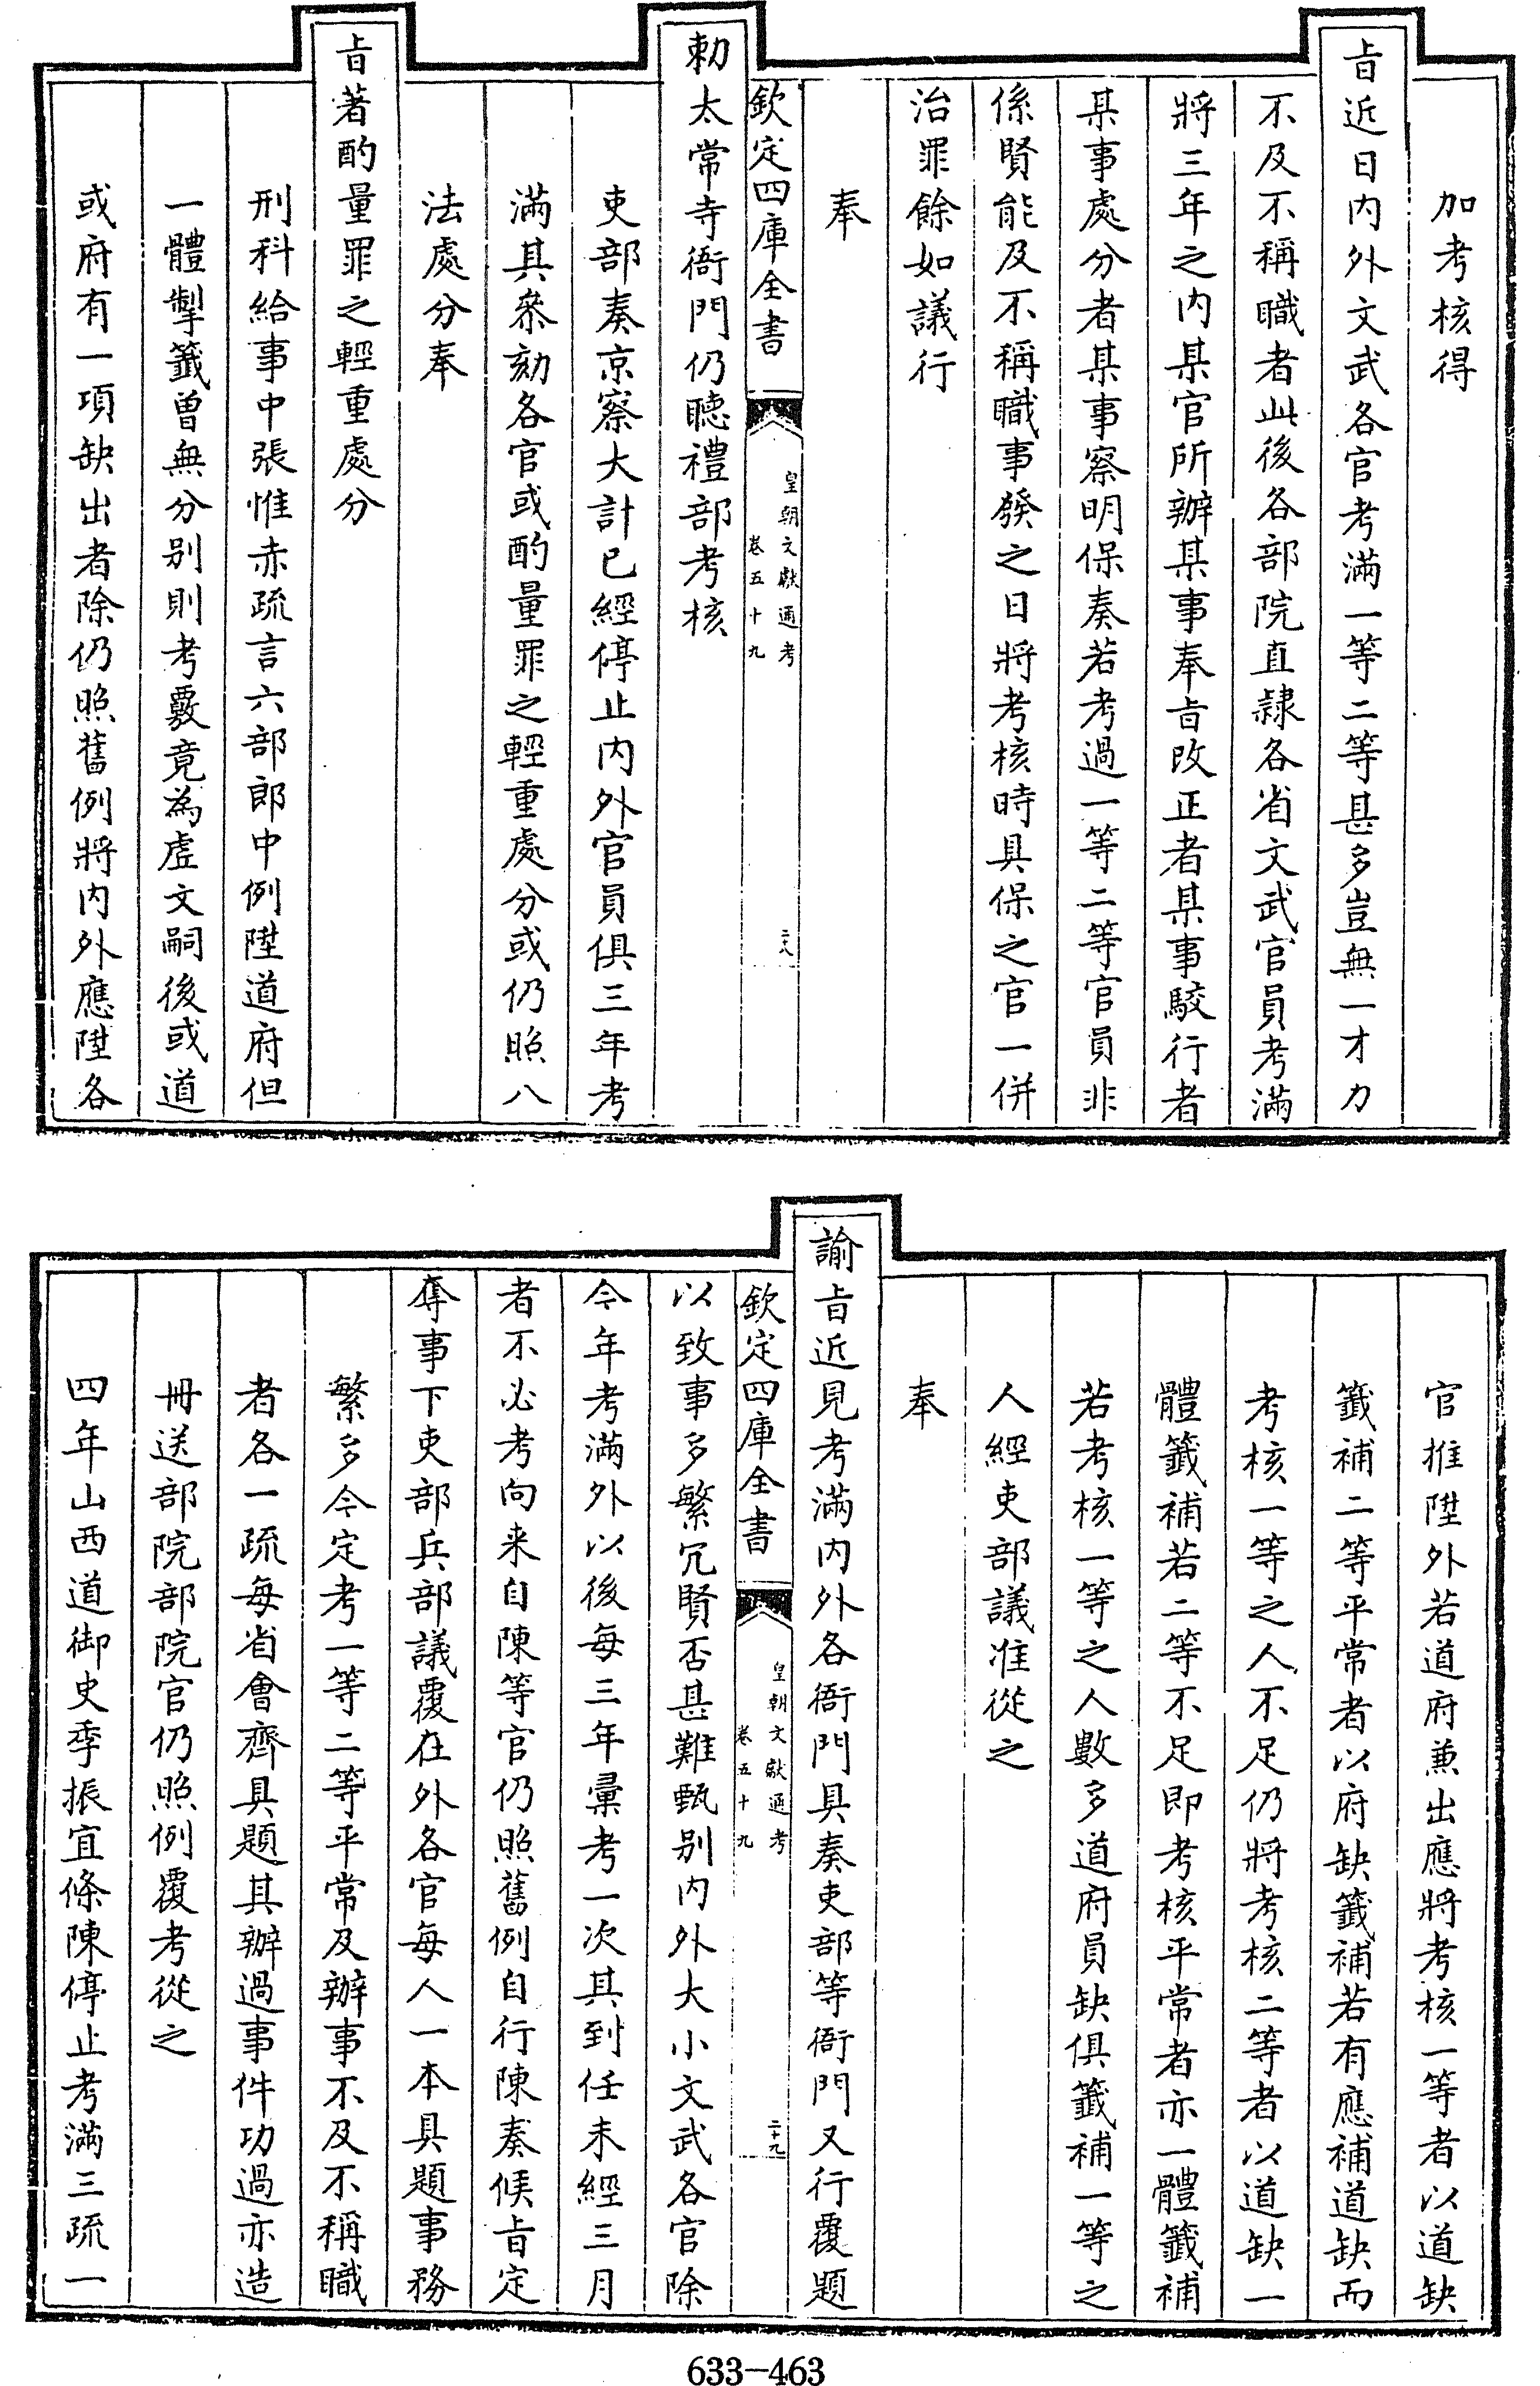 加考核得
㫖近日内外文武各官考滿一等二等甚多豈無一才力
不及不稱職者此後各部院直隷各省文武官員考滿
將三年之内某官所辦某事奉㫖改正者某事駮行者
某事處分者某事察明保奏若考過一等二等官員非
係賢能及不稱職事發之日將考核時具保之官一併
治罪餘如議行
奉
欽定四庫全書
皇朝文獻通考
卷五十九
二八
勅太常寺衙門仍聴禮部考核
吏部奏京察大計已經停止内外官員俱三年考
滿其叅劾各官或酌量罪之輕重處分或仍照八
法處分奉
㫖著酌量罪之輕重處分
刑科給事中張惟赤疏言六部郎中例陞道府但
一體掣籤曽無分别則考覈竟為虚文嗣後或道
或府有一項缺出者除仍照舊例將内外應陞各
官推陞外若道府兼出應將考核一等者以道缺
籤補二等平常者以府缺籤補若有應補道缺而
考核一等之人不足仍將考核二等者以道缺一
體籤補若二等不足即考核平常者亦一體籤補
若考核一等之人數多道府員缺俱籤補一等之
人經吏部議准從之
奉
諭㫖近見考滿内外各衙門具奏吏部等衙門又行覆題
欽定四庫全書
皇朝文獻通考
卷五十九
二十九
以致事多繁冗賢否甚難甄别内外大小文武各官除
今年考滿外以後每三年彚考一次其到任未經三月
者不必考向来自陳等官仍照舊例自行陳奏候㫖定
奪事下吏部兵部議覆在外各官每人一本具題事務
繁多今定考一等二等平常及辦事不及不稱職
者各一疏每省會齊具題其辦過事件功過亦造
冊送部院部院官仍照例覆考從之
四年山西道御史季振宜條陳停止考滿三疏一
633-463